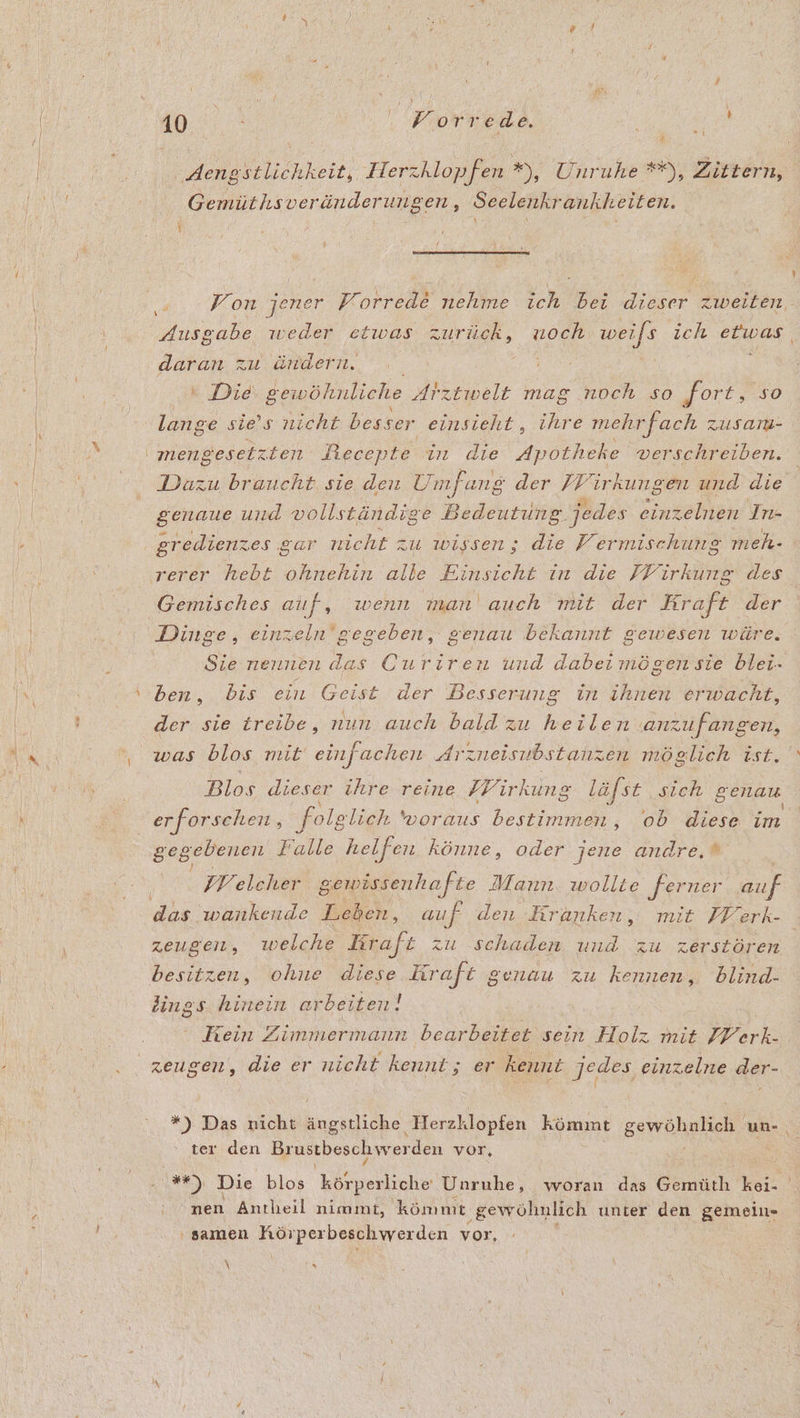 10 Vorrede.
Aengstlichkeit, Herzklopfen *), Unruhe **), Zittern,
Gemüthsveränderungen, Seelenkrankheiten.
Von jener Vorrede nehme ich bei dieser zweiten
Ausgabe weder etwas zurück, noch weiſs ich etwas
daran zu ändern.
Die gewöhnliche Arztwelt mag noch so fort, so
lange sie's nicht besser einsieht, ihre mehrfach zusam-
mengesetzten Recepte in die Apotheke verschreiben.
Dazu braucht sie den Umfang der Wirkungen und die
genaue und vollständige Bedeutung jedes einzelnen In-
gredienzes gar nicht zu wissen; die Vermischung meh-
rerer hebt ohnehin alle Einsicht in die Wirkung des
Gemisches auf, wenn man auch mit der Kraft der
Dinge, einzeln gegeben, genau bekannt gewesen wäre.
Sie nennen das Curiren und dabei mögen sie blei-
ben, bis ein Geist der Besserung in ihnen erwacht,
der sie treibe, nun auch bald zu heilen anzufangen,
was blos mit einfachen Arzneisubstanzen möglich ist.
Blos dieser ihre reine Wirkung läſst sich genau
erforschen, folglich voraus bestimmen, ob diese im
gegebenen Falle helfen könne, oder jene andre.
Welcher gewissenhafte Mann wollte ferner auf
das wankende Leben, auf den Kranken, mit Werk-
zeugen, welche Kraft zu schaden und zu zerstören
besitzen, ohne diese Kraft genau zu kennen, blind-
lings hinein arbeiten!
Kein Zimmermann bearbeitet sein Holz mit Werk-
zeugen, die er nicht kennt; er kennt jedes einzelne der-
*) Das nicht ängstliche Herzklopfen kömmt gewöhnlich un-
ter den Brustbeschwerden vor.
**) Die blos körperliche Unruhe, woran das Gemüth kei-
nen Antheil nimmt, kömmt gewöhnlich unter den gemein-
samen Körperbeschwerden vor.